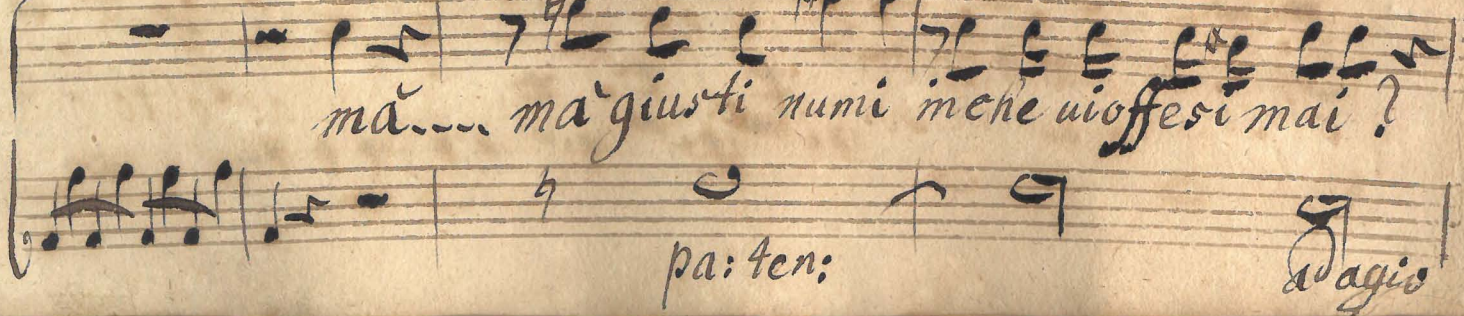 mà.... ma giusti numi in che ui offesi mai ?
pa: ten:
adagio